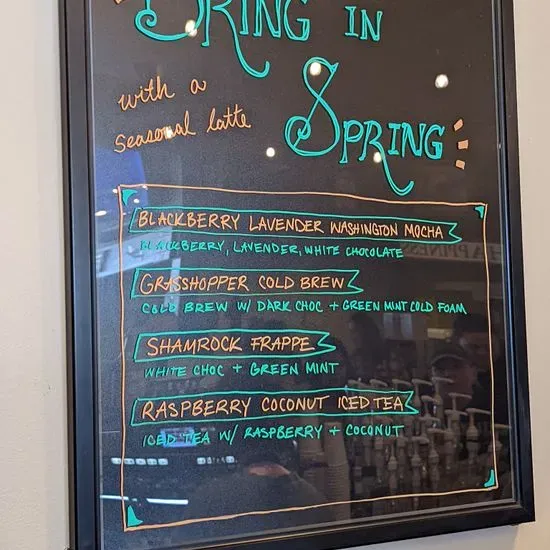 BRING IN
with a
seasonal latte
SPRING
BLACKBERRY LAVENDER WASHINGTON MOCHA
BLACKBERRY, LAVENDER, WHITE CHOCOLATE
GRASSHOPPER COLD BREW
COLD BREW W/ DARK CHOC + GREEN MINT COLD FOAM
SHAMROCK FRAPPE
WHITE CHOC + GREEN MINT
RASPBERRY COCONUT ICED TEA
ICED TEA W/ RASPBERRY + COCONUT